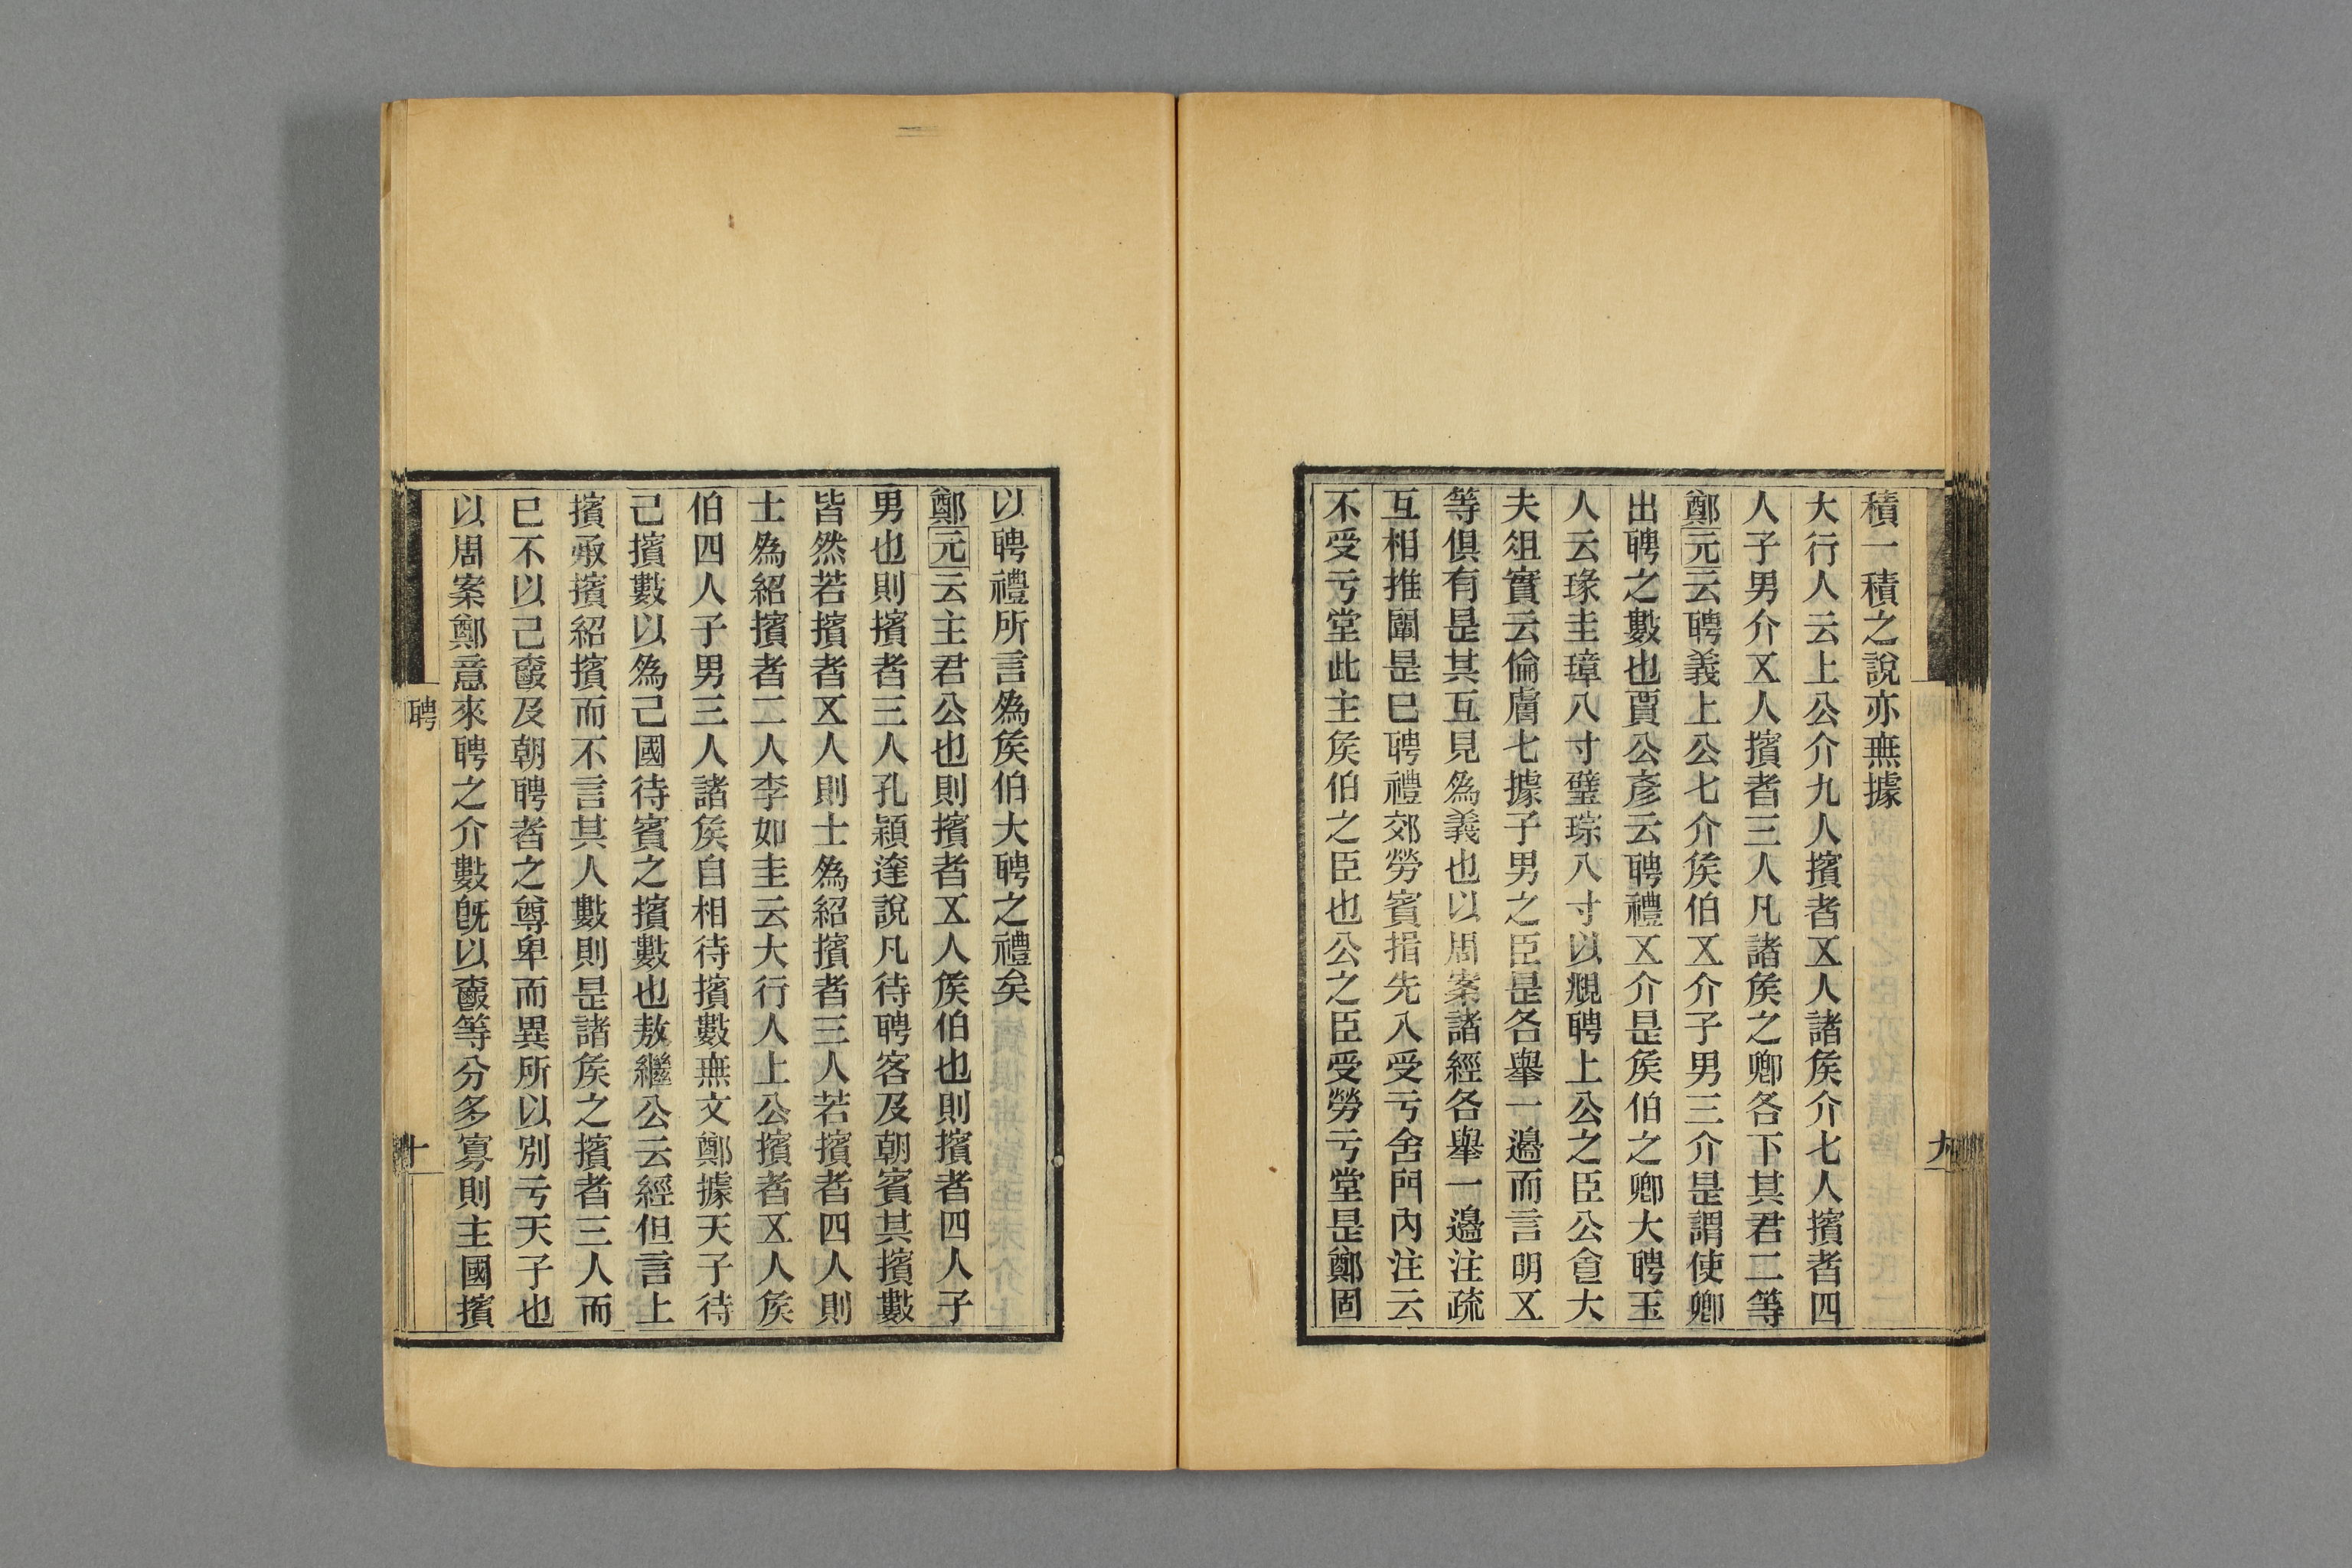 積一積之說亦無據
大行人云上公介九人擯者㐅人諸矦介七人擯者四
人子男介㐅人擯者三人凡諸矦之卿各下其君二等
鄭元云聘義上公七介矦伯㐅介子男三介是謂使卿
出聘之數也賈公彥云聘禮㐅介是矦伯之卿大聘玉
人云瑑圭璋八寸璧琮八寸以覜聘上公之臣公食大
夫俎實云倫膚七據子男之臣是各舉一邊而言明㐅
等俱有是其互見為義也以周案諸經各舉一邊注疏
互相推闡是巳聘禮郊勞賓揖先入受亏舍門內注云
不受亏堂此主矦伯之臣也公之臣受勞亏堂是鄭固
九
以聘禮所言為矦伯大聘之禮矣
鄭元云主君公也則擯者㐅人矦伯也則擯者四人子
男也則擯者三人孔穎達說凡待聘客及朝賓其擯數
皆然若擯者㐅人則士為紹擯者三人若擯者四人則
士為紹擯者二人李如圭云大行人上公擯者㐅人矦
伯四人子男三人諸矦自相待擯數無文鄭據天子待
己擯數以為己國待賓之擯數也敖繼公云經但言上
擯承擯紹擯而不言其人數則是諸矦之擯者三人而
巳不以己爵及朝聘者之尊卑而異所以別亏天子也
以周案鄭意來聘之介數旣以爵等分多寡則主國擯
聘
十